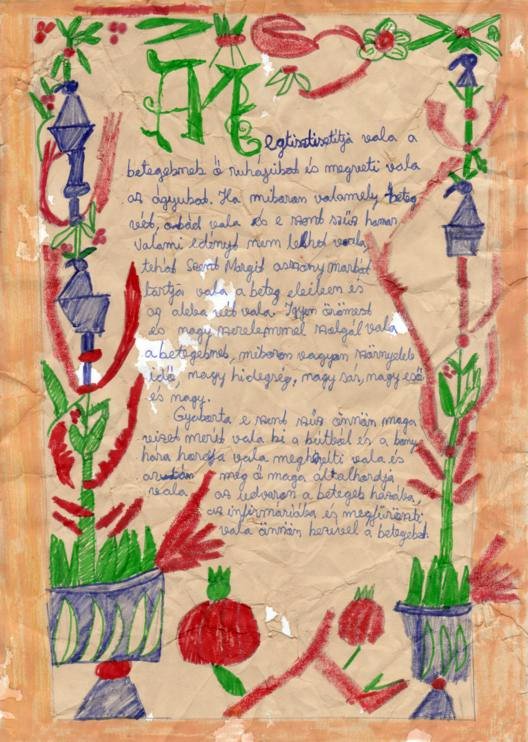 Megtisztisztitja vala a
betegeknek ő ruhájukat és megveti vala
az ágyukat. Ha mikoron valamely beteg
vét, okád vala és e szent szűz hamar
valami edényt nem lelhet vala
tehát Szent Margit asszony markát
tartja vala a beteg eleiben és
az aleba vét vala. Igyen örömest
és nagy szerelemmel szolgál vala
a betegeknek, mikoron vagyon szörnyebb
idő, nagy hidegség, nagy sár, nagy eső
és nagy.
Gyakorta e szent szűz önnön maga
vizet merít vala ki a kútból és a kony-
hára hordja vala
vala és
azután még ő maga általhordja
vala az udvaron a betegek házába,
az infirmáriába és megfüröszti
vala önnön kezeivel a betegeket.